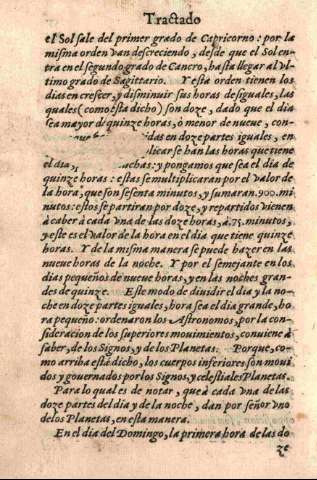 Tractado
el Sol sale del primer grado de Capricorno: por la
misma orden van descreciendo, desde que el Sol en-
tra en el segundo grado de Cancro, hasta llegar al vl-
timo grado de Sagittario. Y està orden tienen los
dias en crescer, y disminuir sus horas desiguales, las
quales (como està dicho) son doze, dado que el dia
sea mayor d̃ quinze horas, ò menor de nueue, con-
das en doze partes iguales, en
licar se hàn las horas que tiene
el dia, chas: y pongamos que sea el dia de
quinze horas: estas se multiplicaràn por el valor de
la hora, que son sesenta minutos, y sumaràn .900. mi-
nutos: estos se partiràn por doze, y repartidos vienen
à caber à cada vna de las doze horas, à .75. minutos,
y este es el valor de la hora en el dia que tiene quinze
horas. Y de la misma manera se puede hazer en las
nueue horas de la noche. Y por el semejante en los
dias pequeños de nueue horas, y en las noches gran-
des de quinze. Este modo de diuidir el dia y la no-
che en doze partes iguales, hora sea el dia grande, ho
ra pequeño: ordenaron los Astronomos, por la con-
sideracion de los superiores mouimientos, conuiene à
saber, de los Signos, y de los Planetas. Porque, co-
mo arriba està dicho, los cuerpos inferiores son moui
dos y gouernados por los Signos, y celestiales Planetas.
Para lo qual es de notar, que à cada vna de las
doze partes del dia y de la noche, dan por señor vno
de los Planetas, en esta manera.
En el dia del Domingo, la primera hora de las do
ze